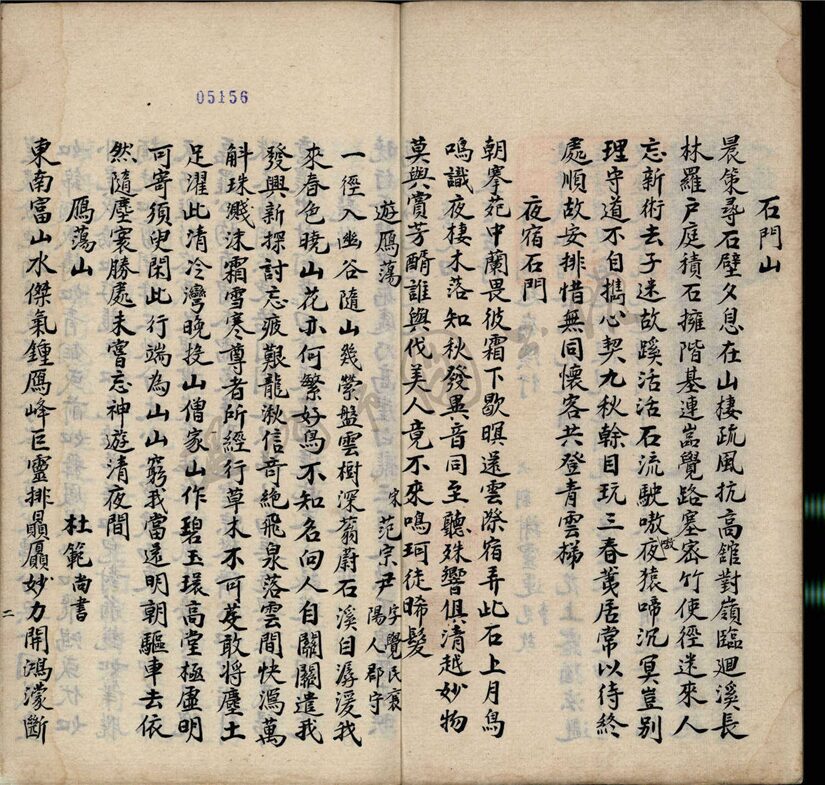 05156
石門山
晨策尋石壁夕息在山棲疏風抗高舘對嶺臨廻溪長
林羅户庭積石擁階基連嵓覺路塞密竹使徑迷來人
忘新術去子迷故蹊活活石流駛噭噭夜猿啼沉冥豈别
理守道不自攜心契九秋榦目玩三春荑居常以待終
處順故安排惜無同懷客共登青雲梯
夜宿石門
朝搴苑中蘭畏彼霜下歇暝還雲際宿弄此石上月鳥
鳴識夜棲木落知秋發異音同至聽殊響俱清越妙物
莫與賞芳醑誰與伐美人竟不來鳴珂徒晞髮
遊鴈蕩
宋范宗尹字覺民襄陽人郡守
一徑入幽谷隨山幾縈盤雲樹深蓊蔚石溪自潺湲我
來春色曉山花亦何繁好鳥不知名向人自關關遣我
發興新探討忘疲艱龍湫信奇絶飛泉落雲間快瀉萬
斛珠濺沫霜雪寒尊者所經行草木不可芟敢將塵土
足濯此清冷灣晚投山僧家山作碧玉環高堂極虛明
可寄須臾閑此行端為山山窮我當還明朝驅車去依
然隨塵寰勝處未嘗忘神遊清夜間
鴈蕩山
杜範尚書
東南富山水傑氣鍾鴈峰巨靈排贔屭妙力開鴻濛斷
二